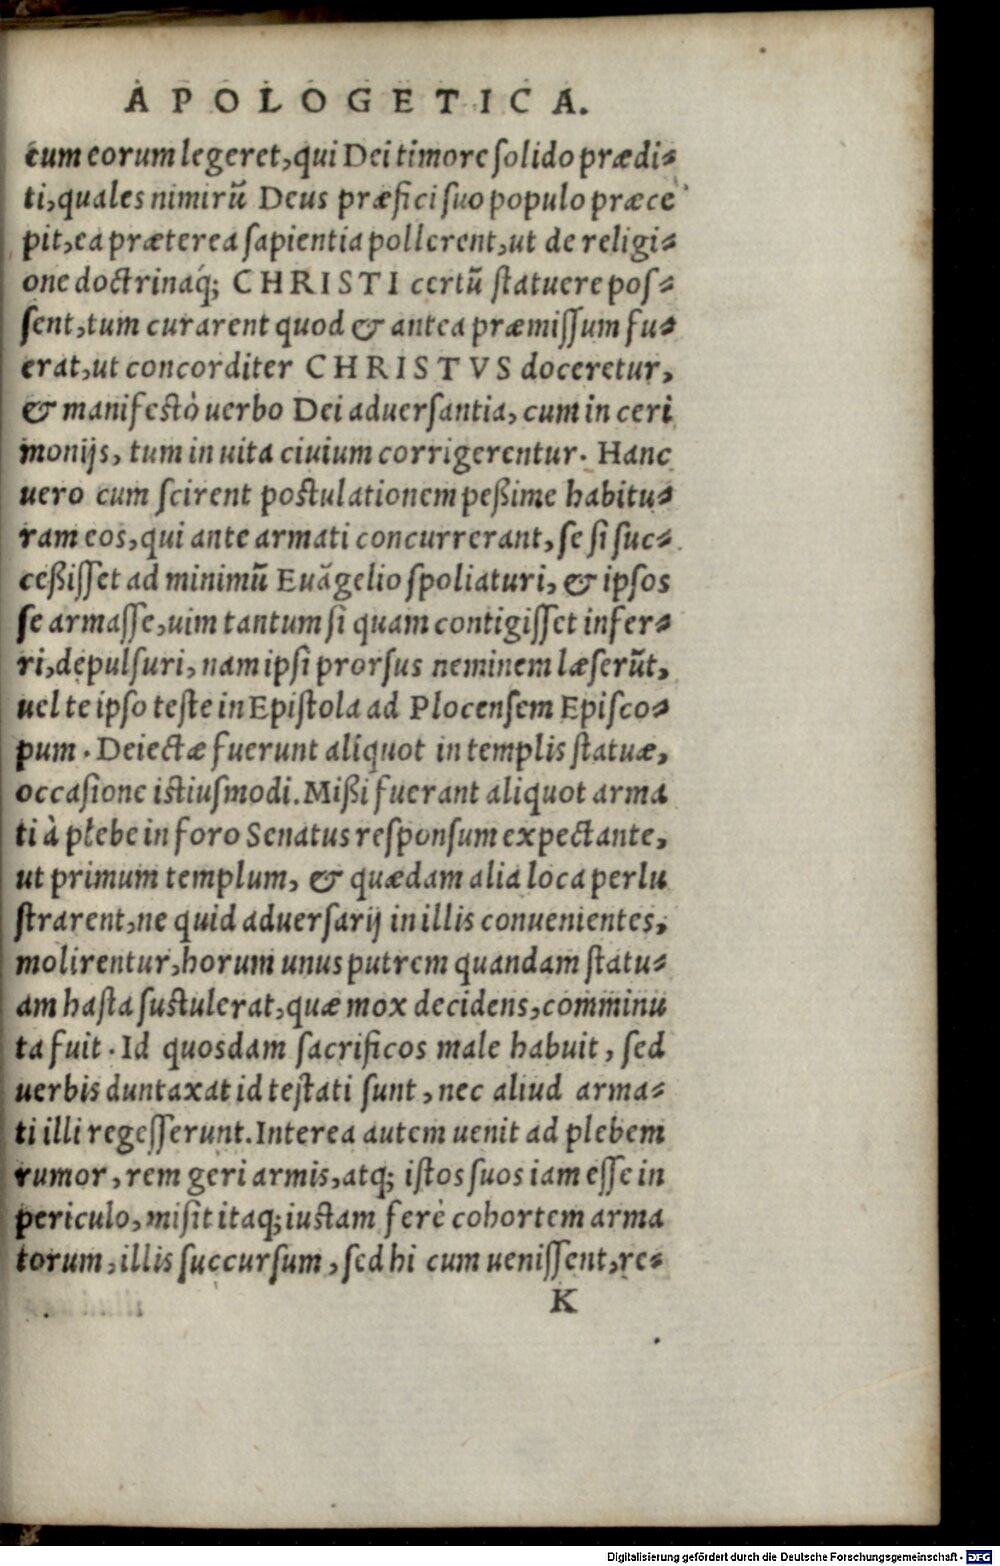 APOLOGETICA.
tum eorum legeret, qui Dei timore solido prædi-
ti, quales nimirũ Deus præfici suo populo præce
pit, ea præterea sapientia pollerent, ut de religi-
one doctrinaq́; CHRISTI certũ statuere pos-
sent, tum curarent quod & antea præmissum fu-
erat, ut concorditer CHRISTVS doceretur,
& manifestò uerbo Dei aduersantia, cum in ceri
monijs, tum in uita ciuium corrigerentur. Hanc
uero cum scirent postulationem peßime habitu-
ram eos, qui ante armati concurrerant, se si suc-
ceßisset ad minimũ Euãgelio spoliaturi, & ipsos
se armasse, uim tantum si quam contigisset infer-
ri, depulsuri, nam ipsi prorsus neminem læserũt,
uel te ipso teste in Epistola ad Plocensem Episco-
pum. Deiectæ fuerunt aliquot in templis statuæ,
occasione istiusmodi. Mißi fuerant aliquot arma
ti à plebe in foro Senatus responsum expectante,
ut primum templum, & quædam alia loca perlu
strarent, ne quid aduersarij in illis conuenientes,
molirentur, horum unus putrem quandam statu-
am hasta sustulerat, quæ mox decidens, comminu
ta fuit. Id quosdam sacrificos male habuit, sed
uerbis duntaxat id testati sunt, nec aliud arma-
ti illi regesserunt. Interea autem uenit ad plebem
rumor, rem geri armis, atq; istos suos iam esse in
periculo, misit itaq; iustam ferè cohortem arma
torum, illis succursum, sed hi cum uenissent, re-
K
Digitalisierung gefördert durch die Deutsche Forschungsgemeinschaft - DFG